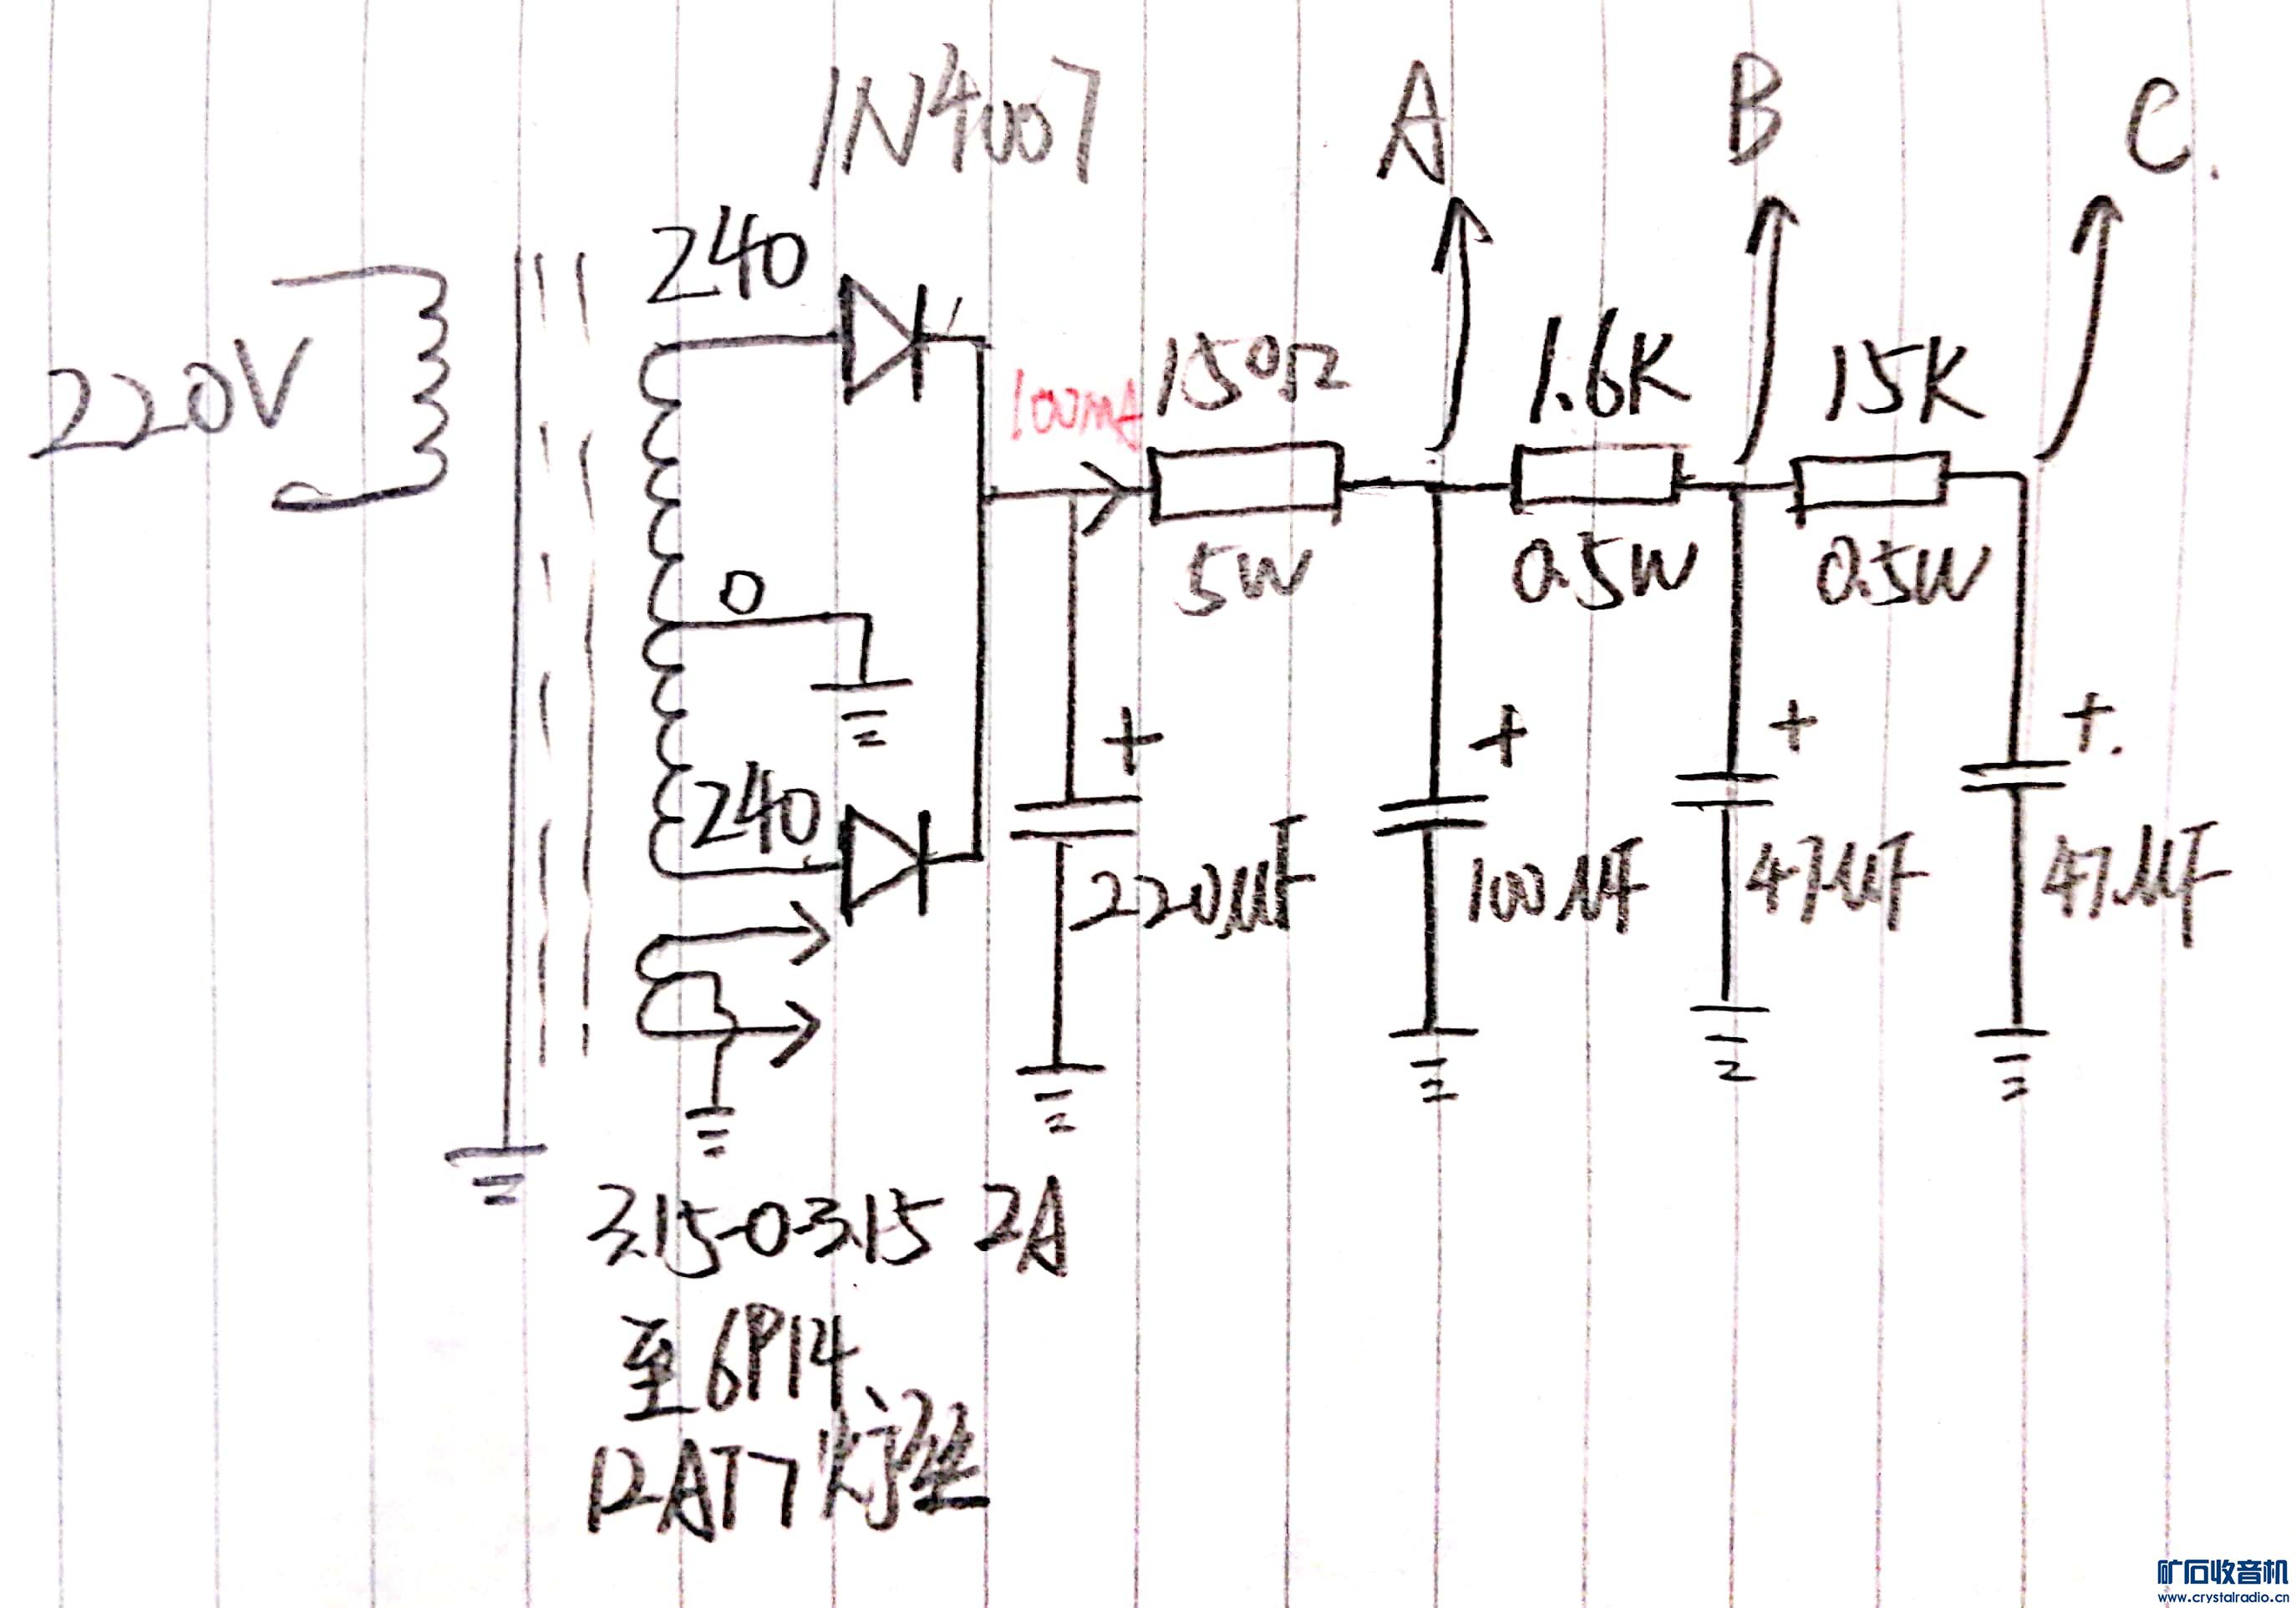 1N4007
A
B
C.
240
220V
100mA
150Ω
1.6K
15K
5W
0.5W
0.5W
0
+
+
+
+.
240
220μF
100μF
47μF
47μF
3.15-0-3.15 2A
至6P14
12AT7灯丝
矿石收音机
www.crystalradio.cn